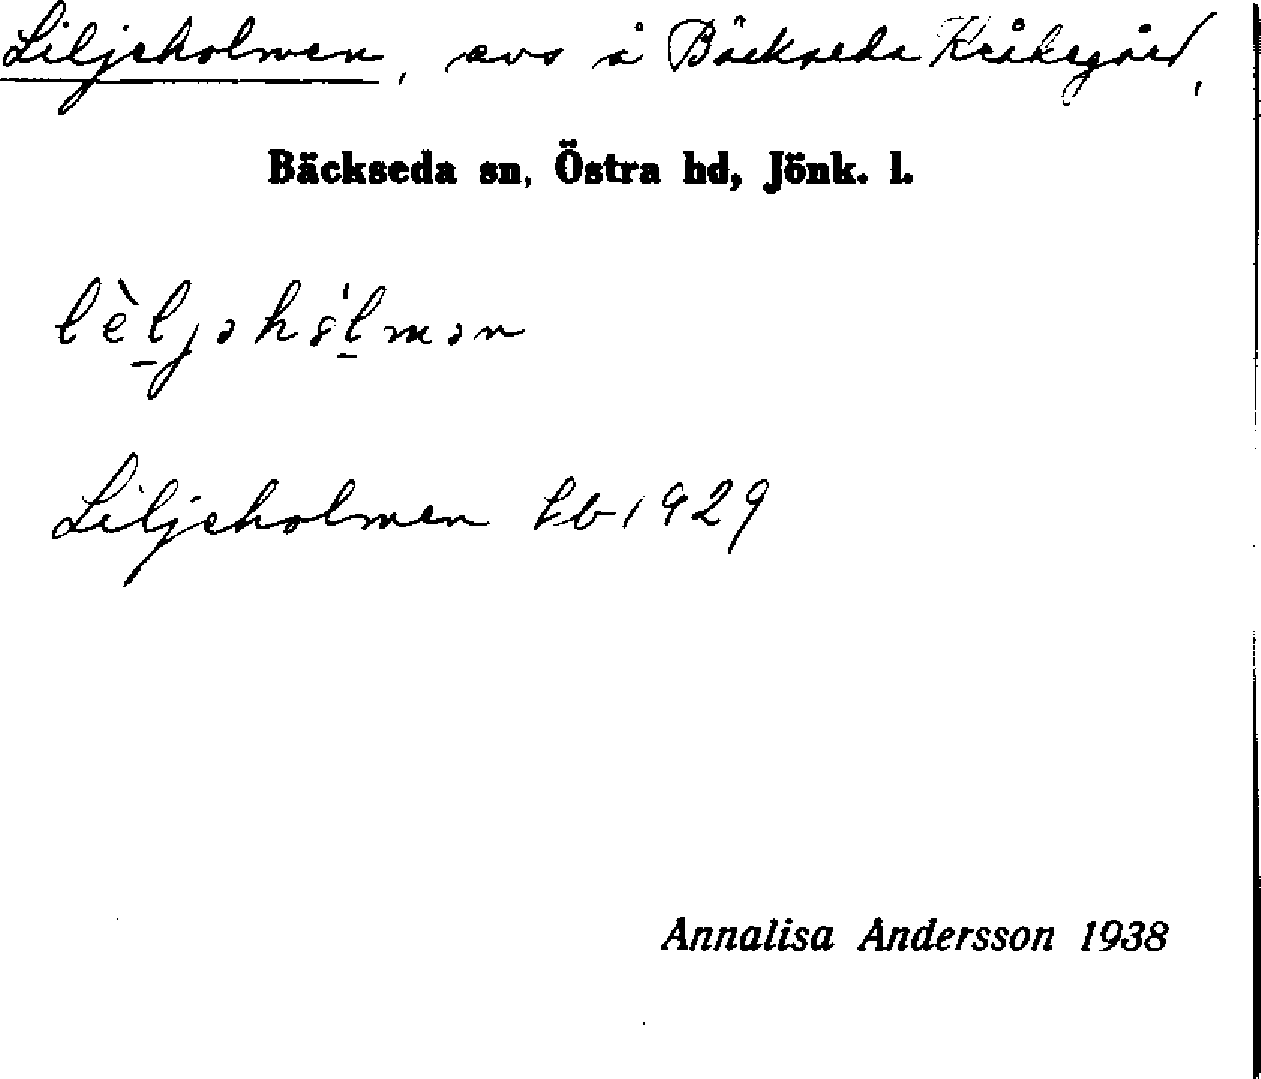 Liljeholmen, avs å Bäckseda Kråkegård,
Bäckseda sn, Östra hd, Jönk. l.
Liljeholmen kb 1929
Annalisa Andersson 1938